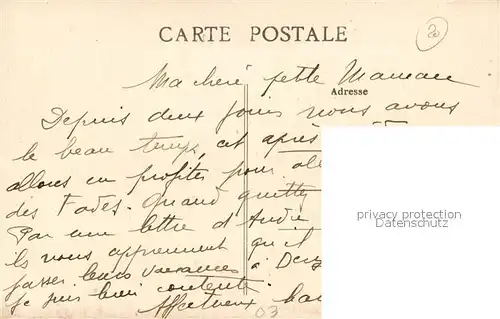 CARTE POSTALE
20
Ma cheré petite Maman
Adresse
Depuis deux jours nous avons
le beau temps, cet après
allons en profiter pour
des Fades. Quand quitte
Par une lettre d'André
ils nous apprennent qu'il
passer leurs vacances à
je suis bien contente.
Affectueux
03
privacy protection
Datenschutz